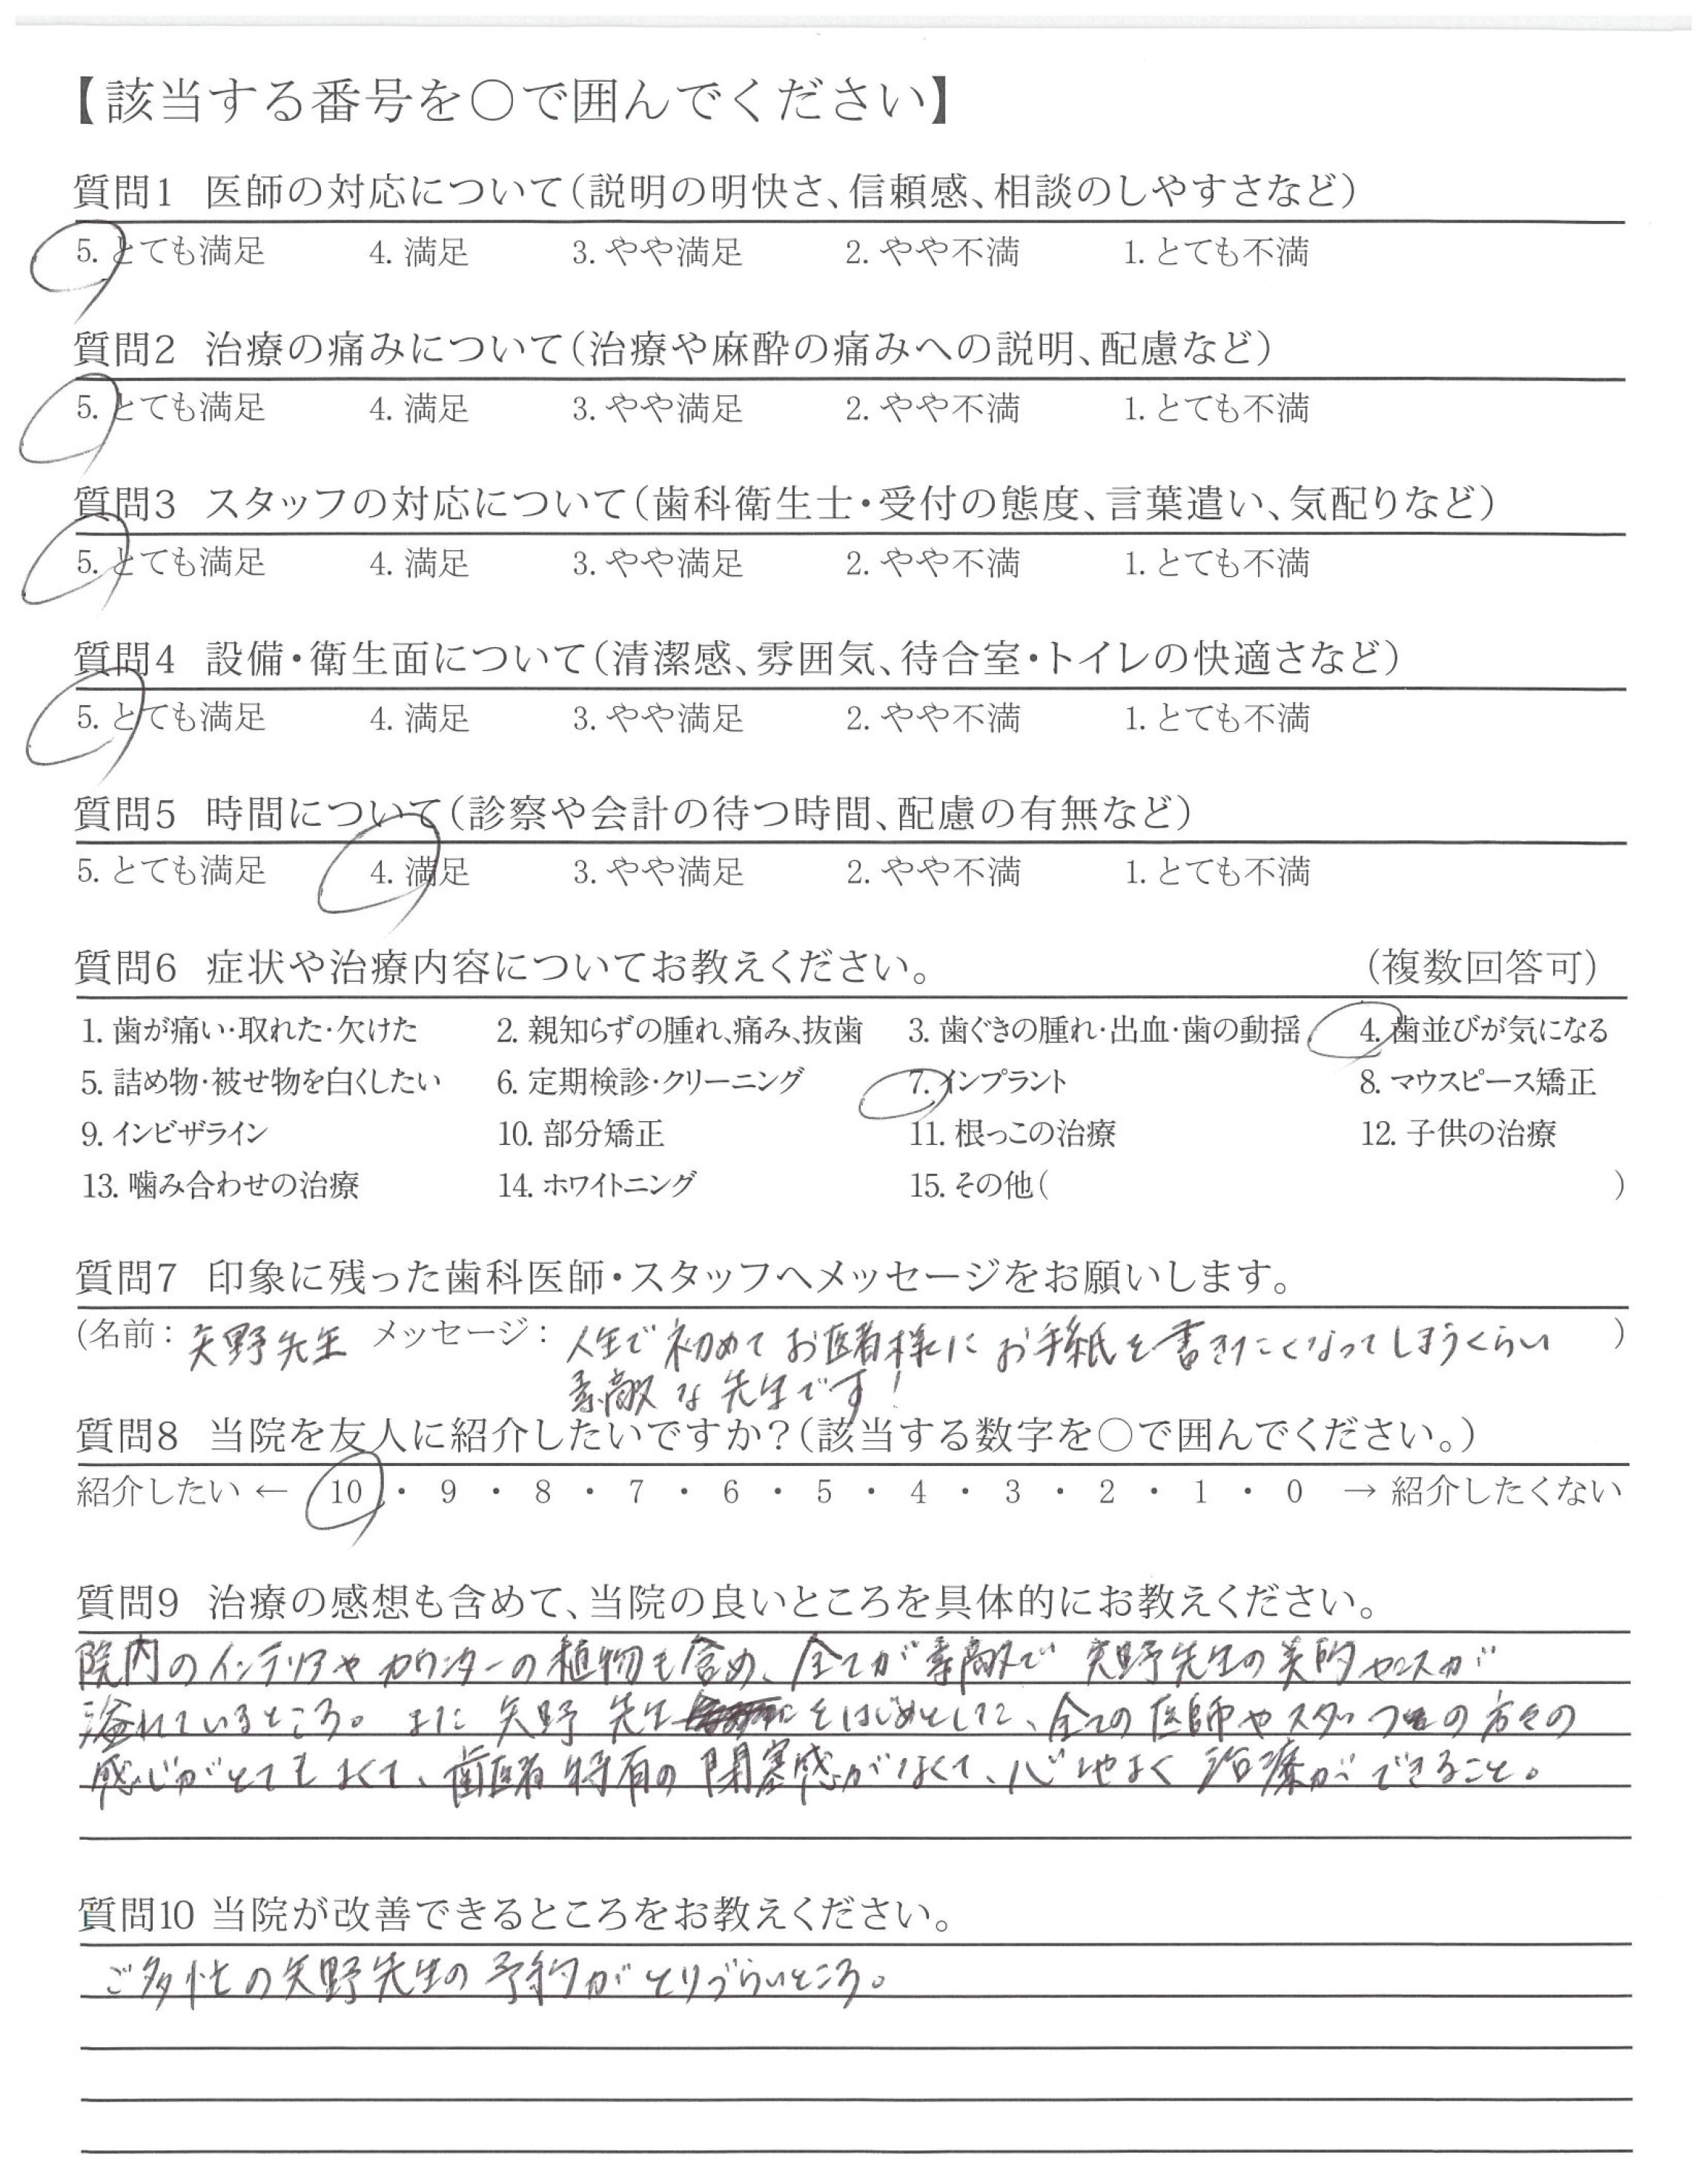 【該当する番号を○で囲んでください】
質問1 医師の対応について（説明の明快さ、信頼感、相談のしやすさなど）
5. とても満足 4. 満足 3. やや満足 2. やや不満 1. とても不満
質問2 治療の痛みについて（治療や麻酔の痛みへの説明、配慮など）
5. とても満足 4. 満足 3. やや満足 2. やや不満 1. とても不満
質問3 スタッフの対応について（歯科衛生士・受付の態度、言葉遣い、気配りなど）
5. とても満足 4. 満足 3. やや満足 2. やや不満 1. とても不満
質問4 設備・衛生面について（清潔感、雰囲気、待合室・トイレの快適さなど）
5. とても満足 4. 満足 3. やや満足 2. やや不満 1. とても不満
質問5 時間について（診察や会計の待つ時間、配慮の有無など）
5. とても満足 4. 満足 3. やや満足 2. やや不満 1. とても不満
質問6 症状や治療内容についてお教えください。 （複数回答可）
1. 歯が痛い・取れた・欠けた 2. 親知らずの腫れ、痛み、抜歯 3. 歯ぐきの腫れ・出血・歯の動揺 4. 歯並びが気になる
5. 詰め物・被せ物を白くしたい 6. 定期検診・クリーニング 7. インプラント 8. マウスピース矯正
9. インビザライン 10. 部分矯正 11. 根っこの治療 12. 子供の治療
13. 噛み合わせの治療 14. ホワイトニング 15. その他（ ）
質問7 印象に残った歯科医師・スタッフへメッセージをお願いします。
（名前：矢野先生 メッセージ：人生で初めてお医者様にお手紙を書きたくなってしまうくらい ）
素敵な先生です！
質問8 当院を友人に紹介したいですか？（該当する数字を○で囲んでください。）
紹介したい ← 10 ・ 9 ・ 8 ・ 7 ・ 6 ・ 5 ・ 4 ・ 3 ・ 2 ・ 1 ・ 0 → 紹介したくない
質問9 治療の感想も含めて、当院の良いところを具体的にお教えください。
院内のインテリアやカウンターの植物も含め、全てが素敵で矢野先生の美的センスが
溢れているところ。また矢野先生をはじめとした、全ての医師やスタッフの方々の
感じがとてもよくて、歯医者特有の閉塞感がなくて、心地よく治療ができること。
質問10 当院が改善できるところをお教えください。
ご多忙の矢野先生の予約がとりづらいところ。